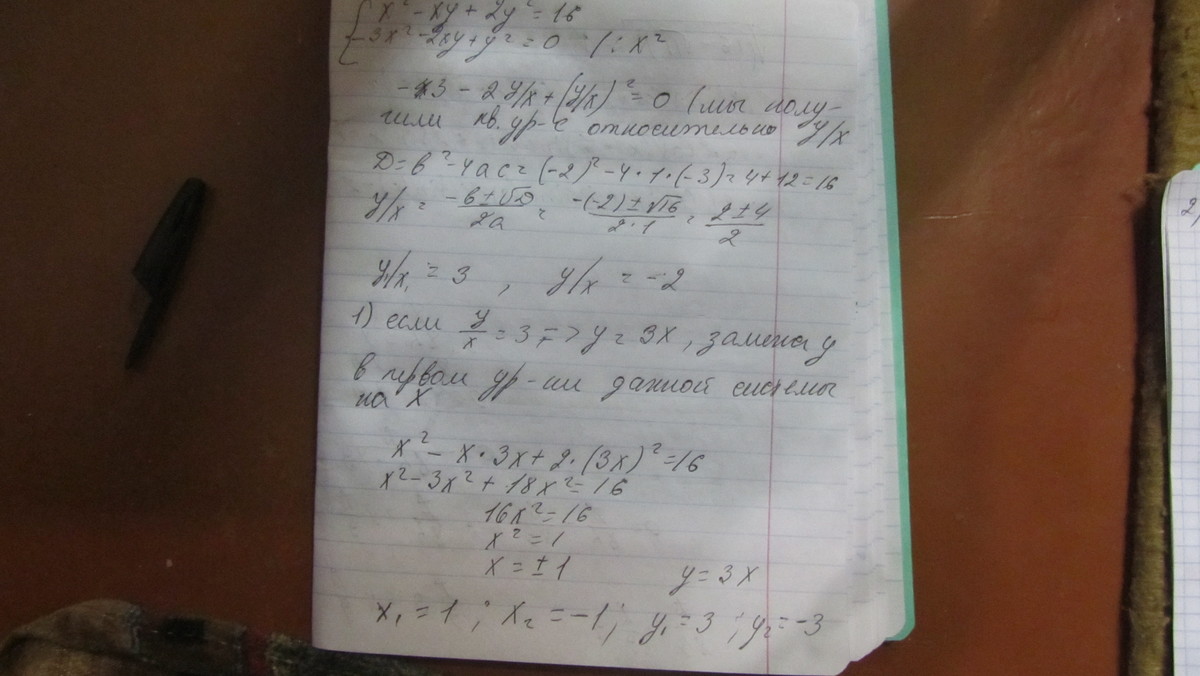 { x² - xy + 2y² = 16
-3x² - 2xy + y² = 0 / : x²
-3 - 2 y/x + (y/x)² = 0 (мы полу-
чили кв. ур-е относительно y/x
D = b² - 4ac = (-2)² - 4·1·(-3) = 4 + 12 = 16
y/x = (-b ± √D)/2a = (-(-2) ± √16)/2·1 = (2 ± 4)/2
y/x₁ = 3 , y/x = -2
1) если y/x = 3, => y = 3x, замена y
в первом ур-ии данной системы
на x
x² - x·3x + 2·(3x)² = 16
x² - 3x² + 18x² = 16
16x² = 16
x² = 1
x = ±1 y = 3x
x₁ = 1 ; x₂ = -1 ; y₁ = 3 ; y₂ = -3
2)